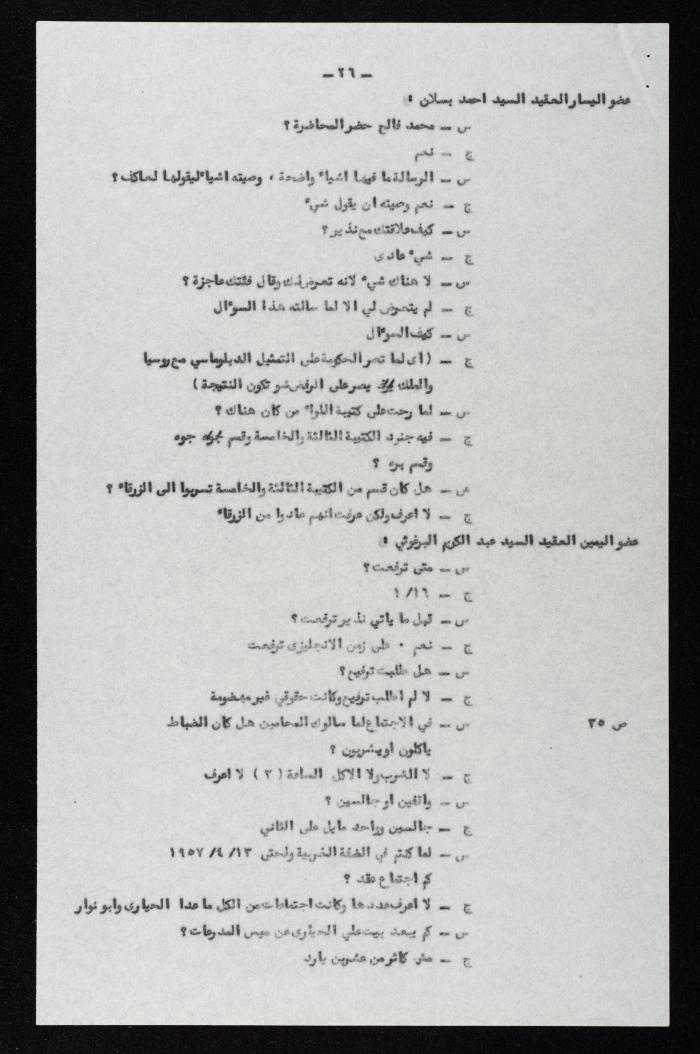 - ٢٦ -
عضو اليسار العقيد السيد احمد بسلان :
س - محمد فالح حضر المحاضرة ؟
ج - نعم
س - الرسالة ما فيها اشياء واضحة ، وصيته اشياء ليقولها لعاكف ؟
ج - نعم وصيته ان يقول شيء
س - كيف علاقتك مع نذير ؟
ج - شيء عادى
س - لا هناك شيء لانه تعرض لك وقال فئتك عاجزة ؟
ج - لم يتعرض لي الا لما سالته هذا السوءال
س - كيف السوءال
ج - ( اى لما تصر الحكومة على التمثيل الدبلوماسي مع روسيا
والملك يصر على الرفض شو تكون النتيجة )
س - لما رحت على كتيبة اللواء من كان هناك ؟
ج - فيه جنود الكتيبة الثالثة والخامسة وقسم جوه
وقسم بره ؟
س - هل كان قسم من الكتيبة الثالثة والخامسة تسربوا الى الزرقاء ؟
ج - لا اعرف ولكن عرفت انهم عادوا من الزرقاء
عضو اليمين العقيد السيد عبد الكريم البرغوثي :
س - متى ترفعت ؟
ج - ١/١٦
س - قبل ما ياتي نذير ترفعت ؟
ج - نعم . على زمن الانجليزى ترفعت
س - هل طلبت ترفيع ؟
ج - لا لم اطلب ترفيع وكانت حقوقي غير مهضومة
ص ٣٥ س - في الاجتماع لما سالوك المحامين هل كان الضباط
ياكلون او يشربون ؟
ج - لا الشرب ولا الاكل الساعة ( ٢ ) لا اعرف
س - واقفين او جالسين ؟
ج - جالسين وواحد مايل على الثاني
س - لما كنتم في الضفة الغربية ولحتى ١٣/ ٤/ ١٩٥٧
كم اجتماع عقد ؟
ج - لا اعرف عددها وكانت اجتماعات من الكل ما عدا الحيارى وابو نوار
س - كم يبعد بيت علي الحيارى عن ميس المدرعات ؟
ج - مش كاثر من عشرين يارد